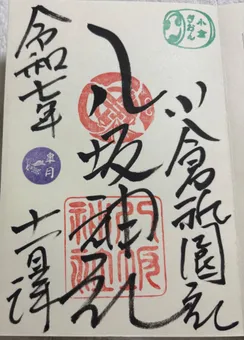 小倉祇園社
八坂神社
令和七年
十一月一日拝
小倉
ぎおん
皐月
八坂
神社